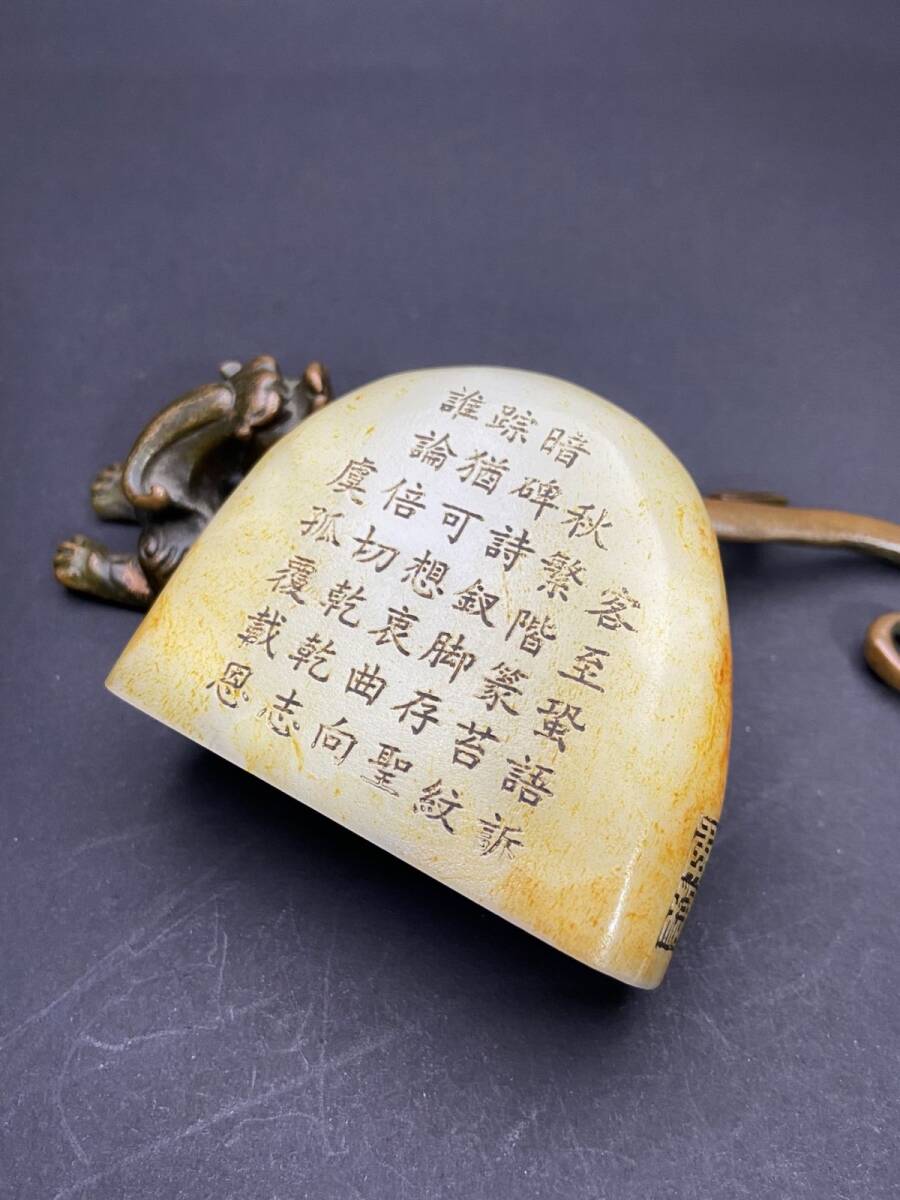 客至蛩語訴
秋繁階篆苔紋
暗碑詩釵脚存聖
踪猶可想哀曲向
誰論倍切乾乾志
虞孤覆載恩